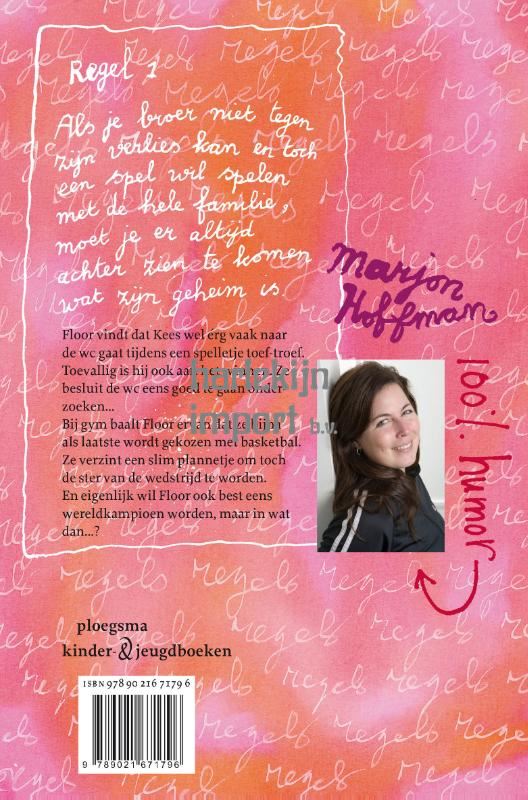 Regel 1
Als je broer niet tegen
zijn verlies kan en toch
een spel wil spelen
met de hele familie,
moet je er altijd
achter zien te komen
wat zijn geheim is.
Marjon
Hoffman
Floor vindt dat Kees wel erg vaak naar
de wc gaat tijdens een spelletje toef-troef.
Toevallig is hij ook aan het winnen. Ze
besluit de wc eens goed te gaan onder-
zoeken...
Bij gym baalt Floor ervan dat ze bijna
als laatste wordt gekozen met basketbal.
Ze verzint een slim plannetje om toch
de ster van de wedstrijd te worden.
En eigenlijk wil Floor ook best eens
wereldkampioen worden, maar in wat
dan...?
harlekijn
import b.v.
100% humor
ploegsma
kinder- & jeugdboeken
ISBN 978 90 216 7179 6
9 789021 671796
regels